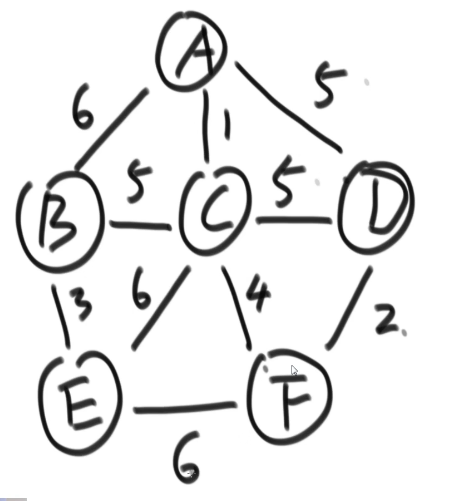 A
6 1 5
B 5 C 5 D
3 6 4 2
E F
6